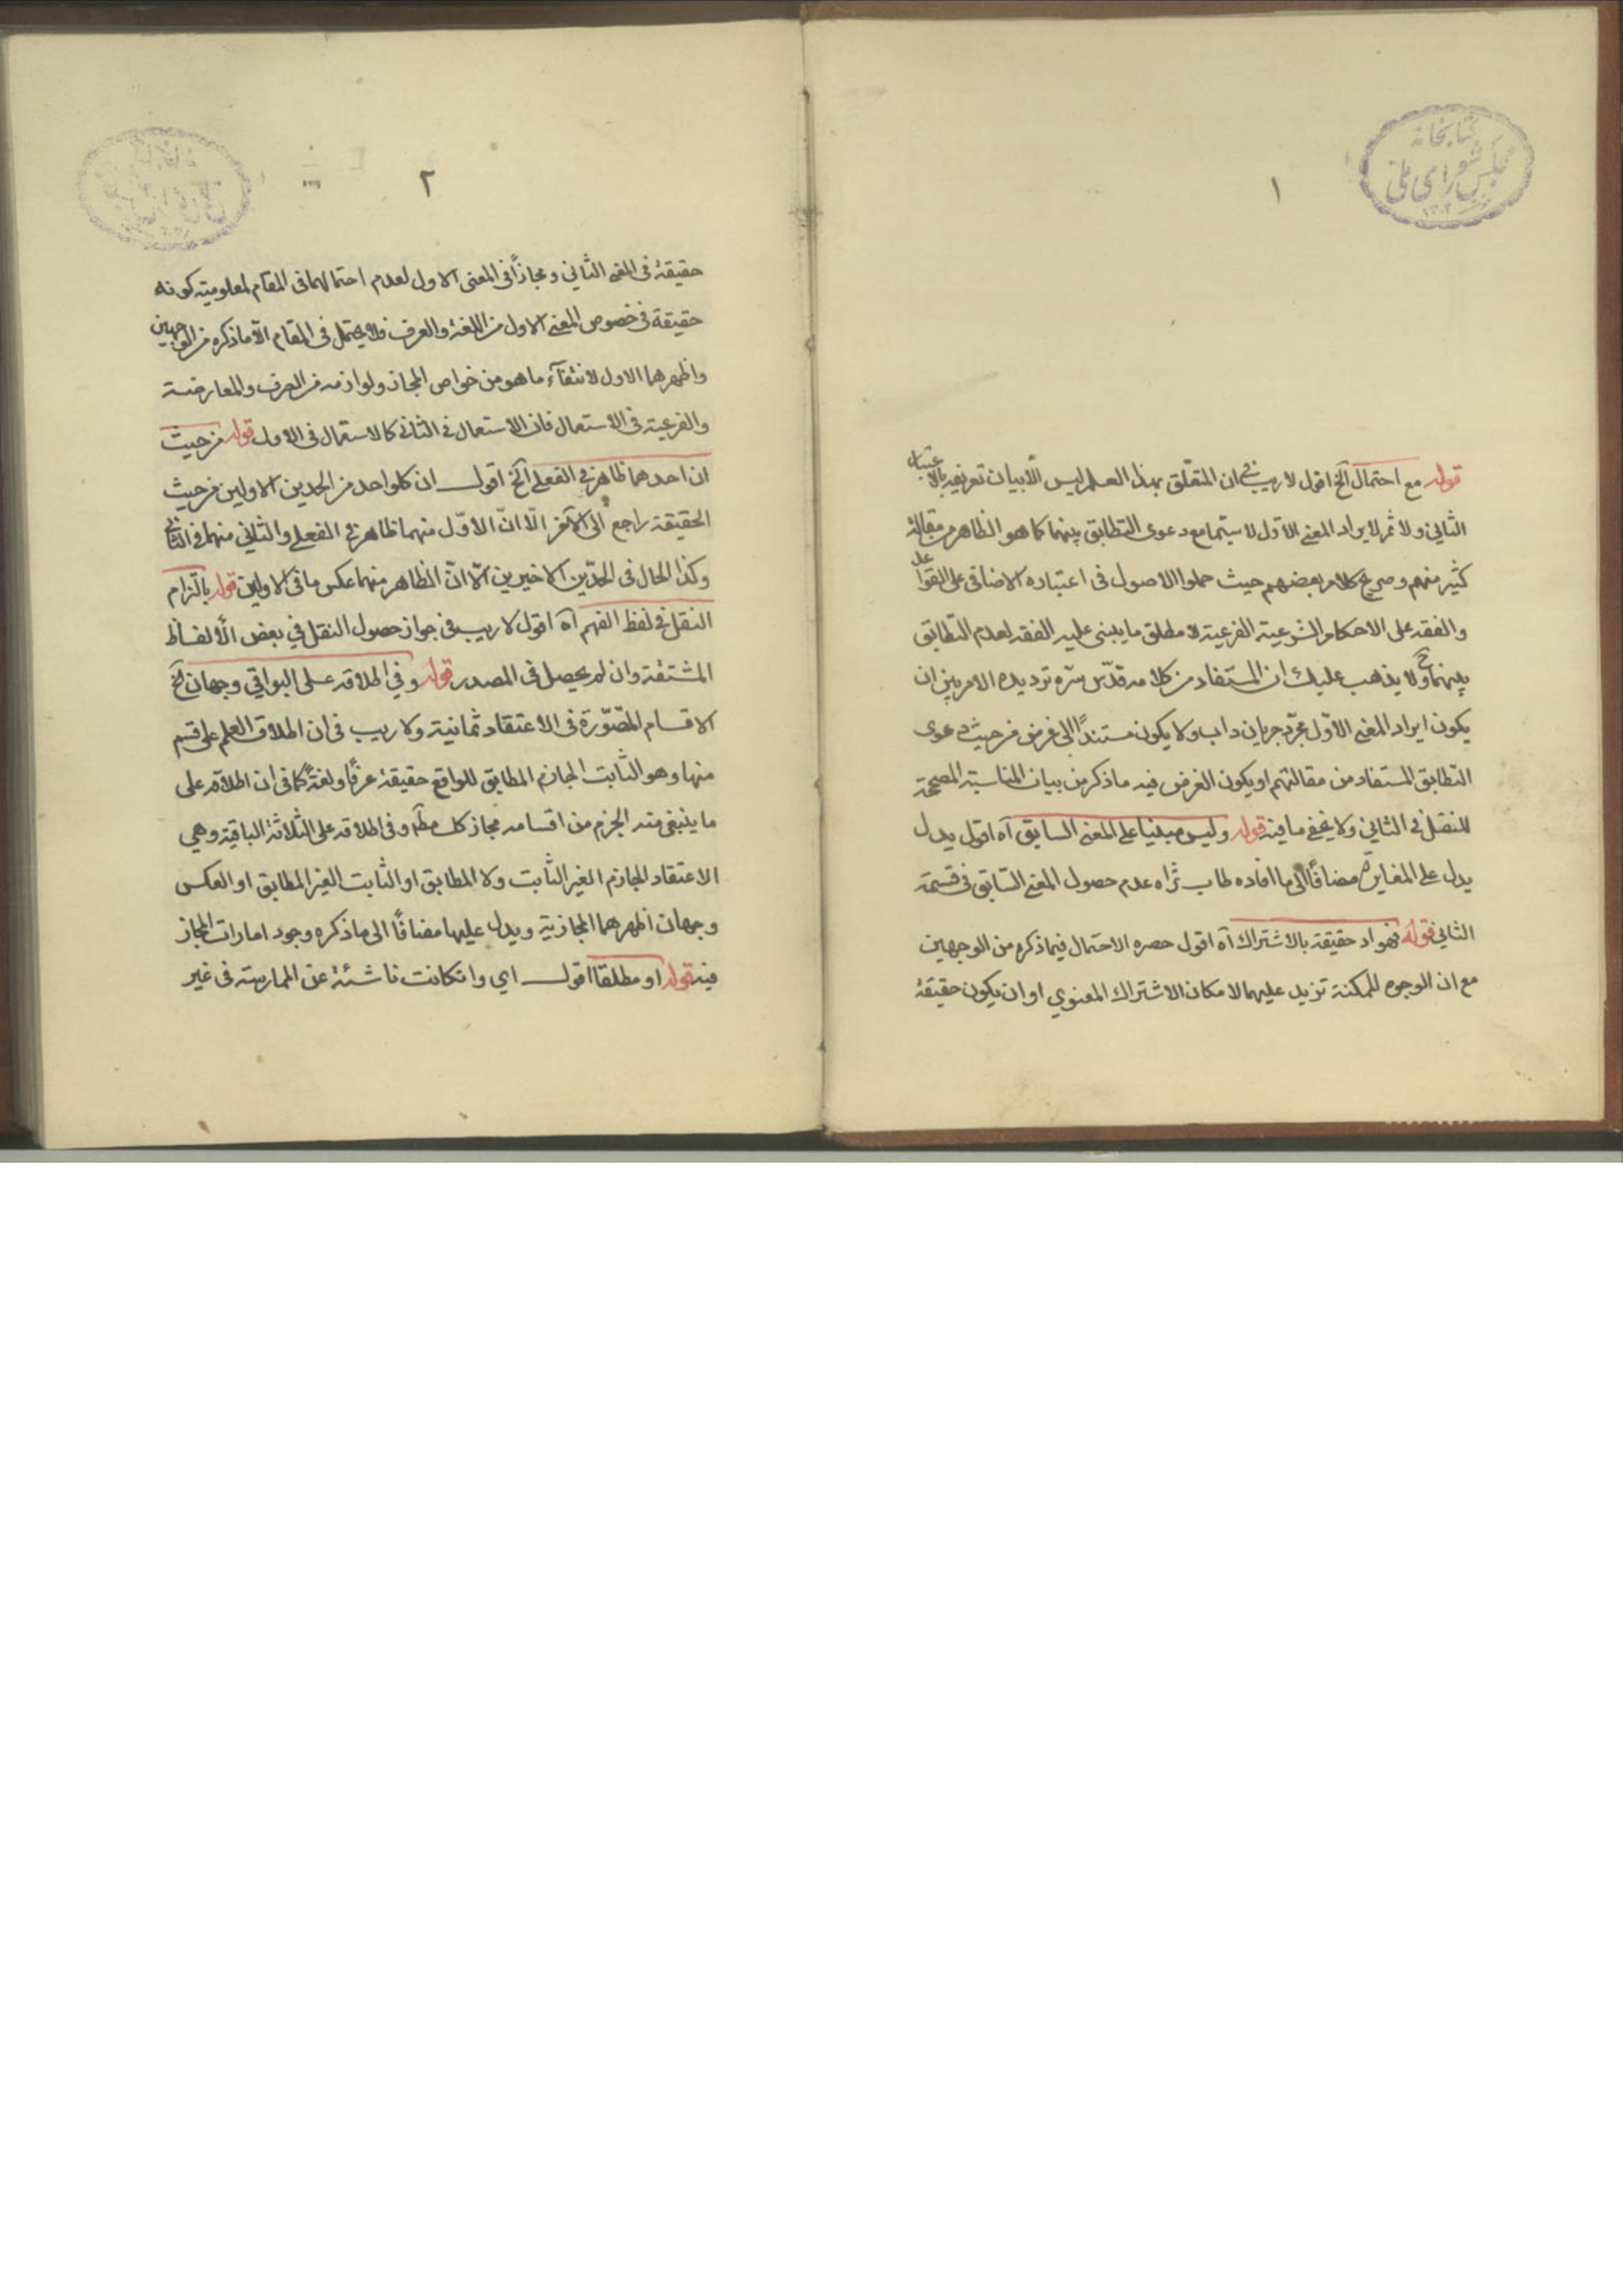 كتابخانه
مجلس شورای ملی
١
قوله مع احتمال آلخ اقول لا ريب في ان المتعلّق بهذا العلم ليس الّا بيان تعريفه بالاعتبار
الثاني ولا ثمر لايراد المعنى الاوّل لا سيّما مع دعوى التطابق بينهما كما هو الظاهر من مقالة
كثير منهم وصريح كلام بعضهم حيث حملوا الاصول في اعتباره الاضافي على القواعد
والفقه على الاحكام الشرعية الفرعية لا مطلق ما يبنى عليه الفقه لعدم التطابق
بينهما ح ولا يذهب عليك ان المستفاد من كلامه قدّس سرّه ترديده الامر بين ان
يكون ايراد المعنى الاوّل مجرّد جريان داب ولا يكون مستنداً الى غرض من حيث دعوى
التطابق المستفاد من مقالتهم او يكون الغرض فيه ما ذكر من بيان المناسبة المصححة
للنقل في الثاني ولا يخفى ما فيه قوله وليس مبنيا على المعنى السابق آه اقول يدل
يدل على المغايرة مضافاً الى ما افاده طاب ثراه عدم حصول المعنى السّابق في قسمة
الثاني قوله فهو اد حقيقة بالاشتراك آه اقول حصره الاحتمال فيما ذكره من الوجهين
مع ان الوجوه الممكنة تزيد عليهما لامكان الاشتراك المعنوي او ان يكون حقيقة
٢
حقيقة في المعنى الثّاني ومجازاً في المعنى الاول لعدم احتمالهما في المقام لمعلومية كونه
حقيقة في خصوص المعنى الاول من اللغة والعرف فلا يحتمل في المقام الّا ما ذكره من الوجهين
واظهرهما الاول لانتفآء ما هو من خواص المجاز ولوازمه من العرف والمعارضة
والفرعية في الاستعمال فان الاستعمال في الثاني كالاستعمال في الاول قوله من حيث
ان احدهما ظاهر في الفعلى آلخ اقول ان كلواحد من الحدين الاولين من حيث
الحقيقة راجع الى الآخر الّا انّ الأوّل منهما ظاهر في الفعلى والثاني منهما في الثاني
وكذا الحال في الحدّين الاخيرين الّا انّ الظاهر منهما عكس ما في الاولين قوله بالتزام
النقل في لفظ الفهم آه اقول لا ريب في جواز حصول النقل في بعض الألفاظ
المشتقة وان لم يحصل في المصدر قوله وفي اطلاقه على البواقي وجهان آلخ
الاقسام المتصّورة في الاعتقاد ثمانية ولا ريب في ان اطلاق العلم على قسم
منها وهو الثّابت الجازم المطابق للواقع حقيقة عرفًا ولغةً كما في ان اطلاقه على
ما ينبغي منه الجزم من اقسامه مجاز كك مطلقا وفي اطلاقه على الثلاثة الباقية وهي
الاعتقاد الجازم الغير الثّابت ولا المطابق او الثابت الغير المطابق او العكس
وجهان اظهرهما المجازية ويدل عليها مضافًا الى ما ذكره وجود امارات المجاز
فيه قوله او مطلقا اقول اي وانكانت ناشئة عن الممارسة في غير